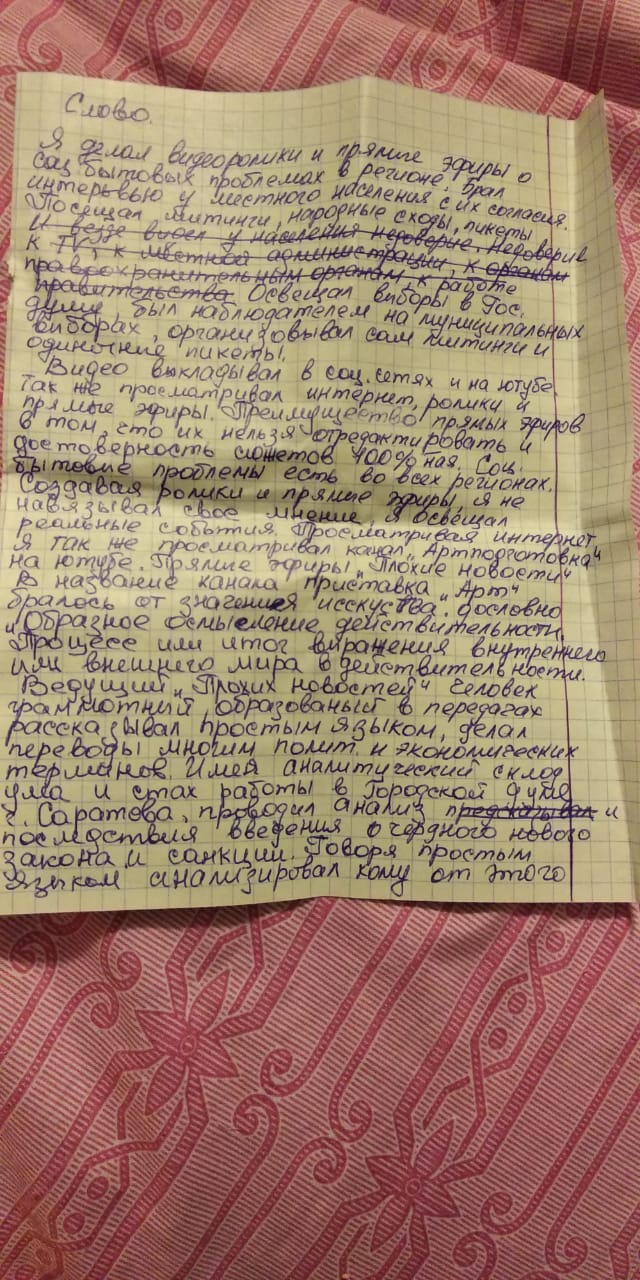 Слово.
Я делал видеоролики и прямые эфиры о
соц бытовых проблемах в регионе, брал
интервью у местного населения с их согласия.
Посещал митинги, народные сходы, пикеты
И везде видел у населения недоверие. Недоверие
к ТV, к местной администрации, к органам
правоохранительным органам, к работе
правительства. Освещал выборы в Гос.
думу, был наблюдателем на муниципальных
выборах, организовывал сам митинги и
одиночные пикеты.
Видео выкладывал в соц. сетях и на ютубе.
Так же просматривал интернет, ролики и
прямые эфиры. Преимущество прямых эфиров
в том, что их нельзя отредактировать и
достоверность сюжетов 100% ная. Соц.
бытовые проблемы есть во всех регионах.
Создавая ролики и прямые эфиры, я не
навязывал свое мнение, я освещал
реальные события. Просматривая интернет
я так же просматривал канал „Артподготовка"
на ютубе. Прямые эфиры „Плохие новости"
В название канала приставка „Арт"
бралось от значения исскуства. дословно
„Образное осмысление действительности.
Процесс или итог выражения внутреннего
или внешнего мира в действительности.
Ведущий „Плохих новостей" человек
грамотный, образованый в передачах
рассказывал простым языком, делал
переводы многим полит. и экономических
терминов. Имея аналитический склад
ума и стаж работы в Городской думе
г. Саратова, проводил анализ предсказывал и
последствия введения очердного нового
закона и санкции. Говоря простым
языком анализировал кому от этого